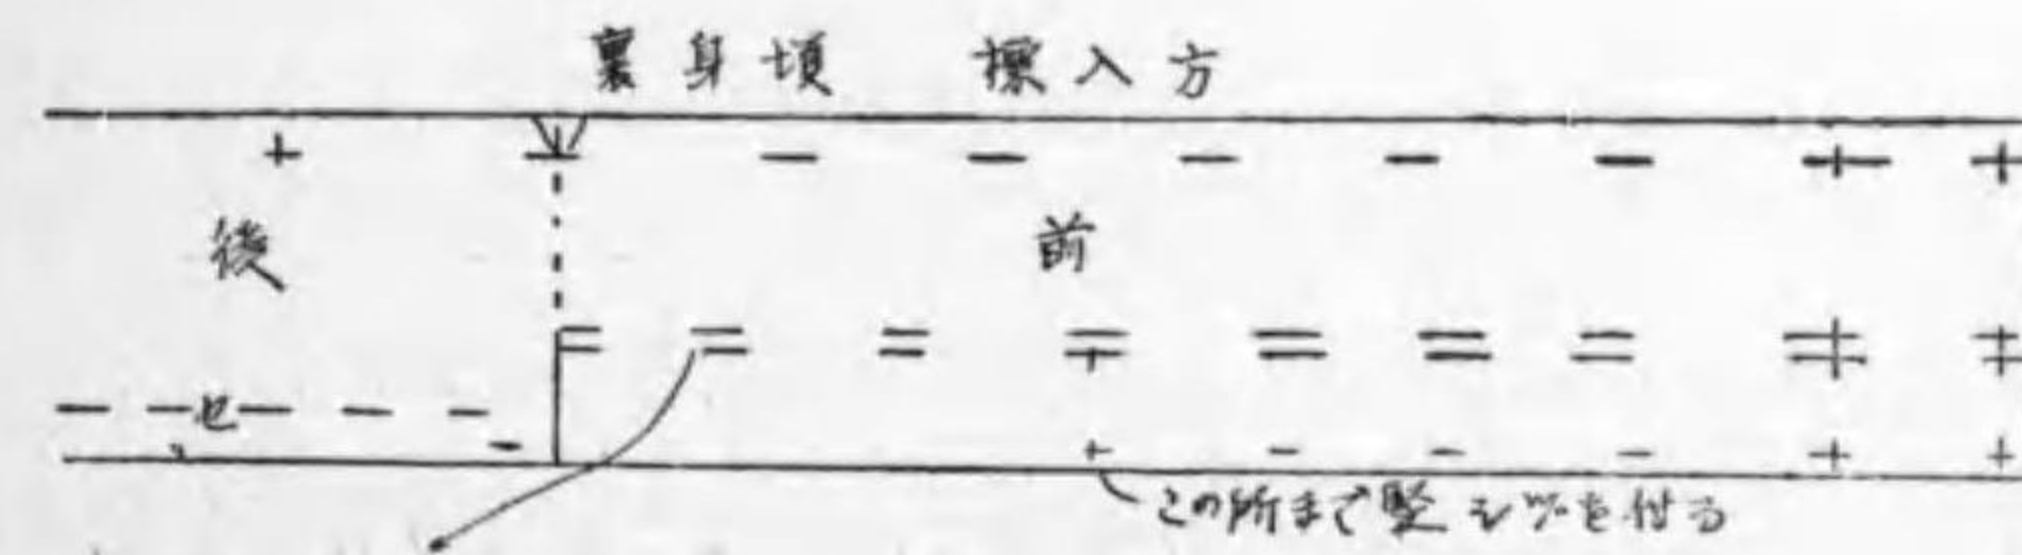 裏身頃 標入方
後
前
セ
この所まで竪シツケを付る